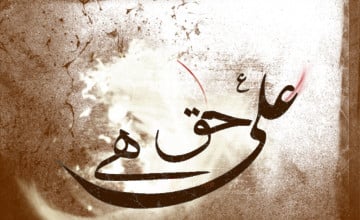 علیؑ حق ہے